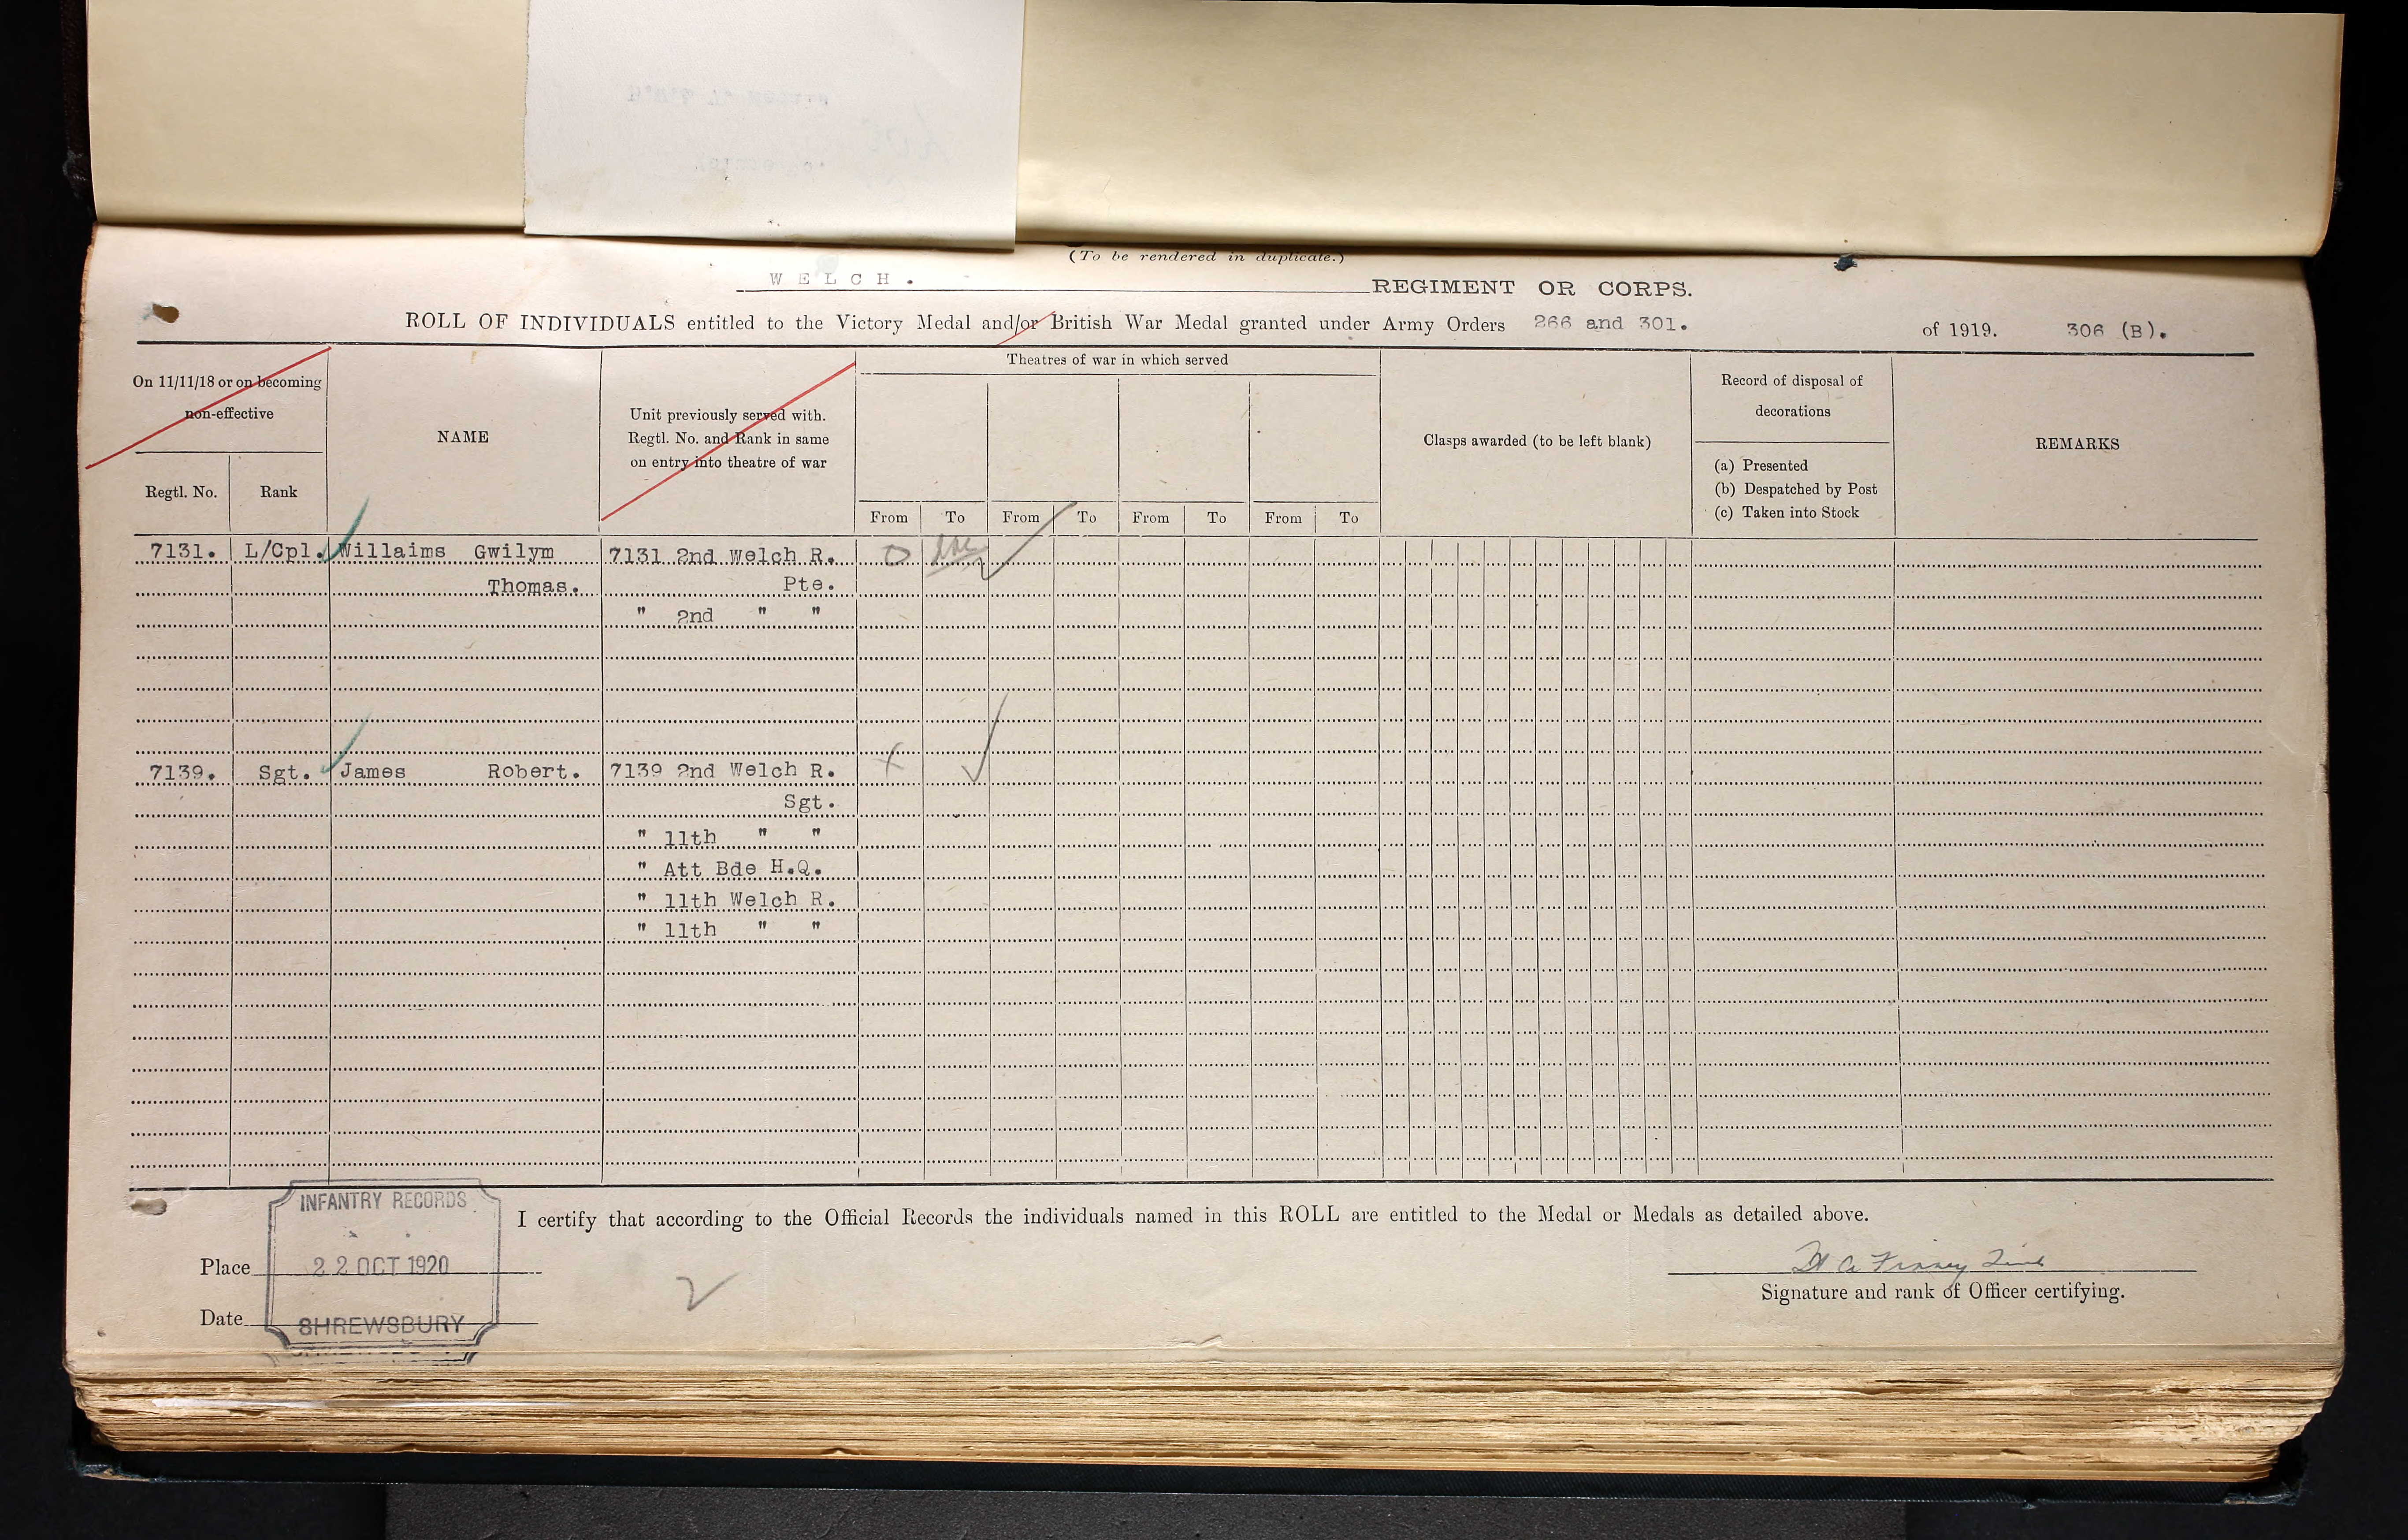 (To be rendered in duplicate.)
WELCH. REGIMENT OR CORPS.
ROLL OF INDIVIDUALS entitled to the Victory Medal and/or British War Medal granted under Army Orders 266 and 301. of 1919. 306 (B).
On 11/11/18 or on becoming
non-effective
Regtl. No. Rank
NAME
Unit previously served with.
Regtl. No. and Rank in same
on entry into theatre of war
Theatres of war in which served
From To From To From To From To
Clasps awarded (to be left blank)
Record of disposal of
decorations
(a) Presented
(b) Despatched by Post
(c) Taken into Stock
REMARKS
7131. L/Cpl. Willaims Gwilym 7131 2nd Welch R.
Thomas. Pte.
" 2nd " "
7139. Sgt. James Robert. 7139 2nd Welch R.
Sgt.
" 11th " "
" Att Bde H.Q.
" 11th Welch R.
" 11th " "
I certify that according to the Official Records the individuals named in this ROLL are entitled to the Medal or Medals as detailed above.
INFANTRY RECORDS
Place 22 OCT 1920
Date SHREWSBURY
2
Signature and rank of Officer certifying.